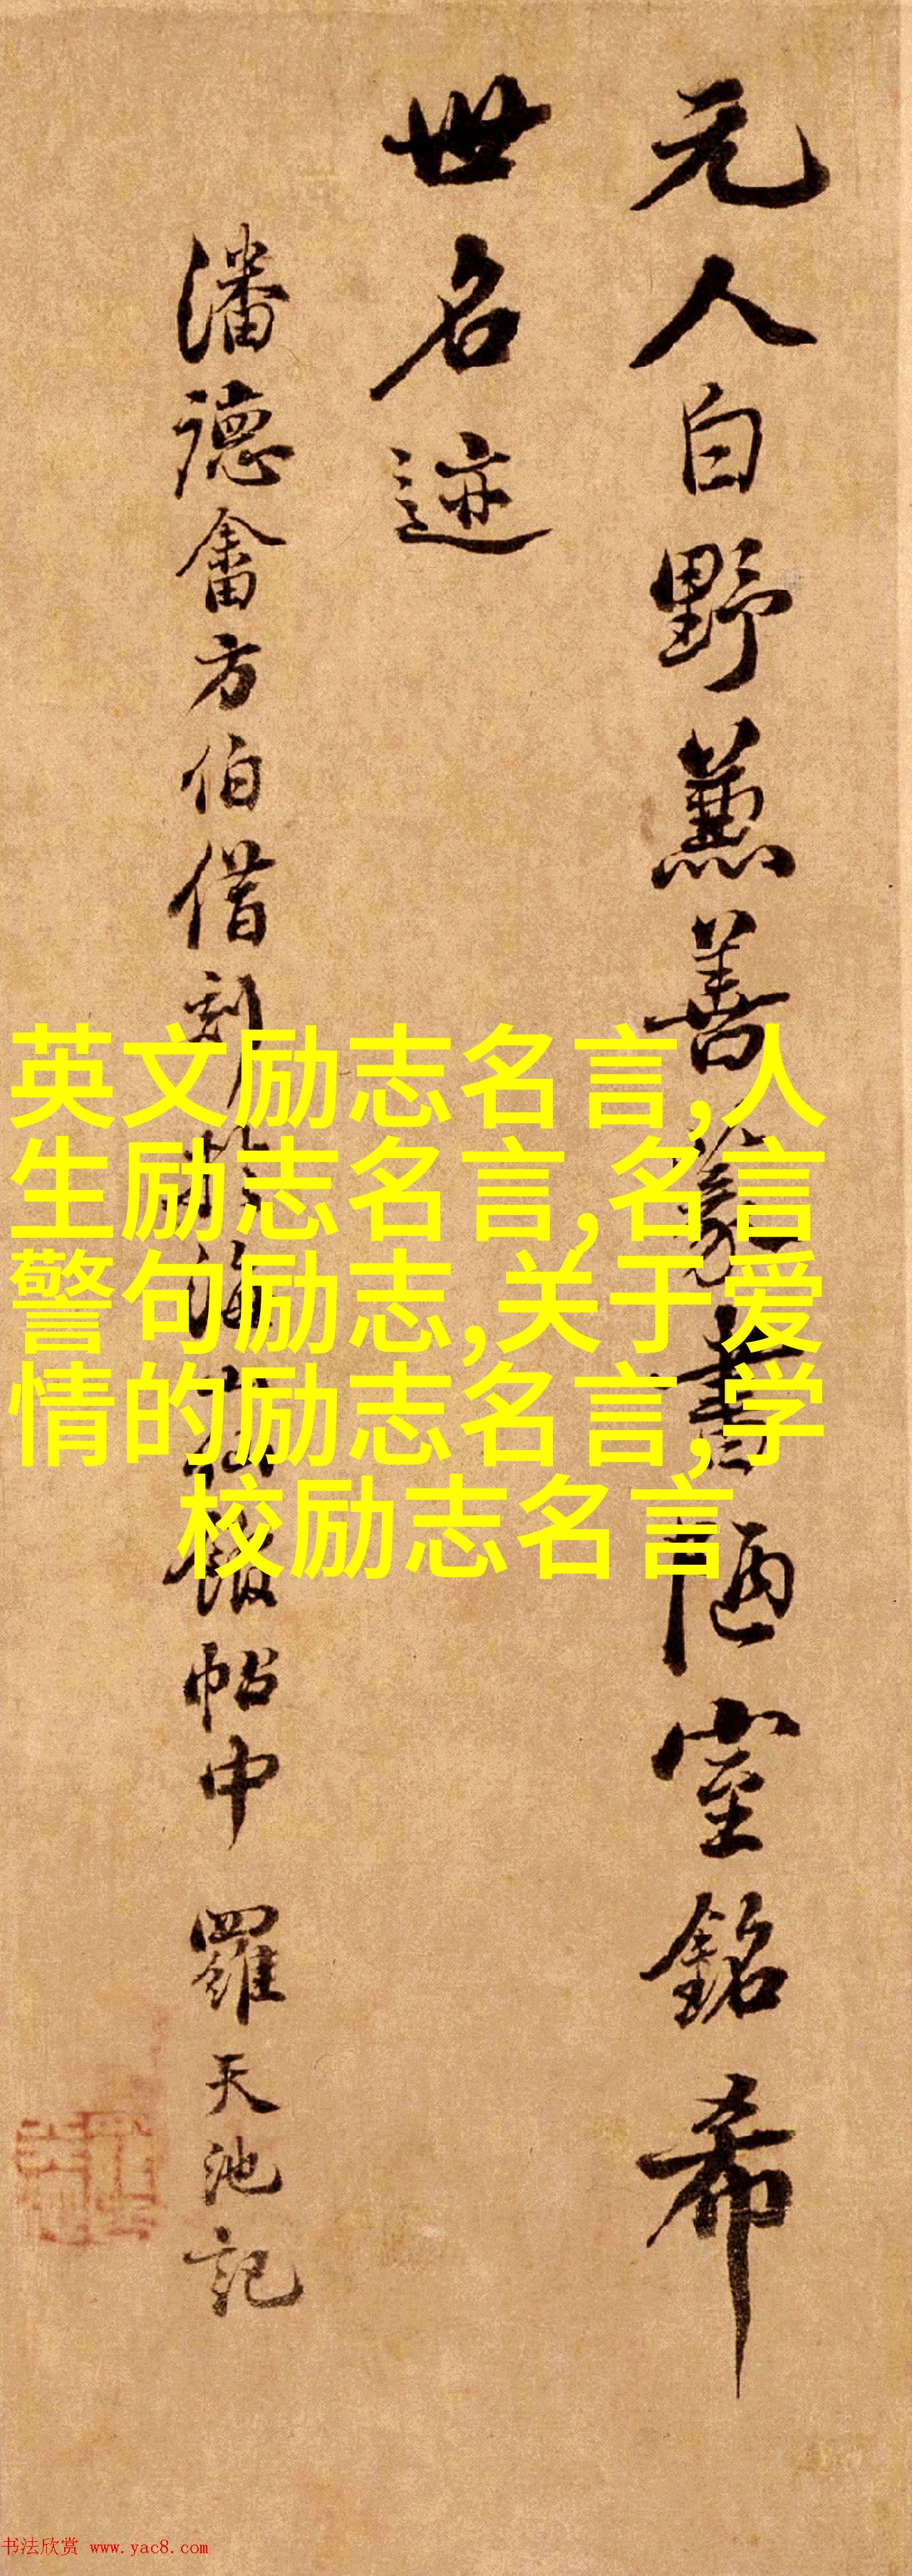 元人白野兼善篆書陋室銘希
世名迹
潘德畬方伯借刻於海山仙館帖中 羅天池記
英文励志名言,人
生励志名言,名言
警句励志,关于爱
情的励志名言,学
校励志名言
书法欣赏 www.yac8.com